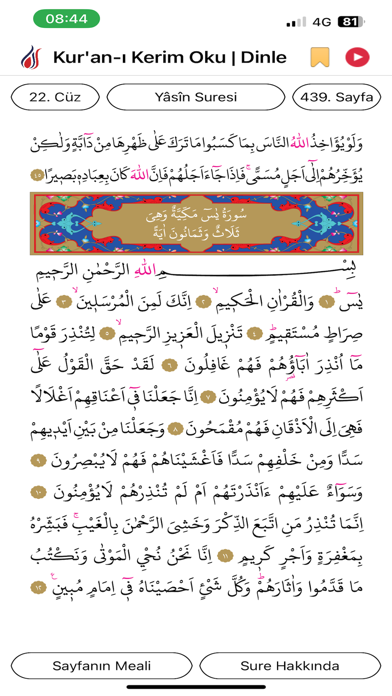 08:44
4G 81
Kur'an-ı Kerim Oku | Dinle
22. Cüz
Yâsîn Suresi
439. Sayfa
وَلَوْ يُؤَاخِذُ اللّٰهُ النَّاسَ بِمَا كَسَبُوا مَا تَرَكَ عَلٰى ظَهْرِهَا مِنْ دَٓابَّةٍ وَلٰكِنْ
يُؤَخِّرُهُمْ اِلٰٓى اَجَلٍ مُسَمًّىۚ فَاِذَا جَٓاءَ اَجَلُهُمْ فَاِنَّ اللّٰهَ كَانَ بِعِبَادِه۪ بَص۪يرًا ٤٥
سُورَةُ يٰسٓ مَكِّيَّةٌ وَهِيَ
ثَلَاثٌ وَثَمَانُونَ اٰيَةً
بِسْمِ اللّٰهِ الرَّحْمٰنِ الرَّح۪يمِ
يٰسٓۜ ١ وَالْقُرْاٰنِ الْحَك۪يمِۙ ٢ اِنَّكَ لَمِنَ الْمُرْسَل۪ينَۙ ٣ عَلٰى
صِرَاطٍ مُسْتَق۪يمٍۜ ٤ تَنْز۪يلَ الْعَز۪يزِ الرَّح۪يمِۙ ٥ لِتُنْذِرَ قَوْمًا
مَٓا اُنْذِرَ اٰبَٓاؤُ۬هُمْ فَهُمْ غَافِلُونَ ٦ لَقَدْ حَقَّ الْقَوْلُ عَلٰٓى
اَكْثَرِهِمْ فَهُمْ لَا يُؤْمِنُونَ ٧ اِنَّا جَعَلْنَا ف۪ٓي اَعْنَاقِهِمْ اَغْلَالًا
فَهِيَ اِلَى الْاَذْقَانِ فَهُمْ مُقْمَحُونَ ٨ وَجَعَلْنَا مِنْ بَيْنِ اَيْد۪يهِمْ
سَدًّا وَمِنْ خَلْفِهِمْ سَدًّا فَاَغْشَيْنَاهُمْ فَهُمْ لَا يُبْصِرُونَ ٩
وَسَوَٓاءٌ عَلَيْهِمْ ءَاَنْذَرْتَهُمْ اَمْ لَمْ تُنْذِرْهُمْ لَا يُؤْمِنُونَ ١٠
اِنَّمَا تُنْذِرُ مَنِ اتَّبَعَ الذِّكْرَ وَخَشِيَ الرَّحْمٰنَ بِالْغَيْبِۚ فَبَشِّرْهُ
بِمَغْفِرَةٍ وَاَجْرٍ كَر۪يمٍ ١١ اِنَّا نَحْنُ نُحْيِ الْمَوْتٰى وَنَكْتُبُ
مَا قَدَّمُوا وَاٰثَارَهُمْۜ وَكُلَّ شَيْءٍ اَحْصَيْنَاهُ ف۪ٓي اِمَامٍ مُب۪ينٍ۟ ١٢
Sayfanın Meali
Sure Hakkında